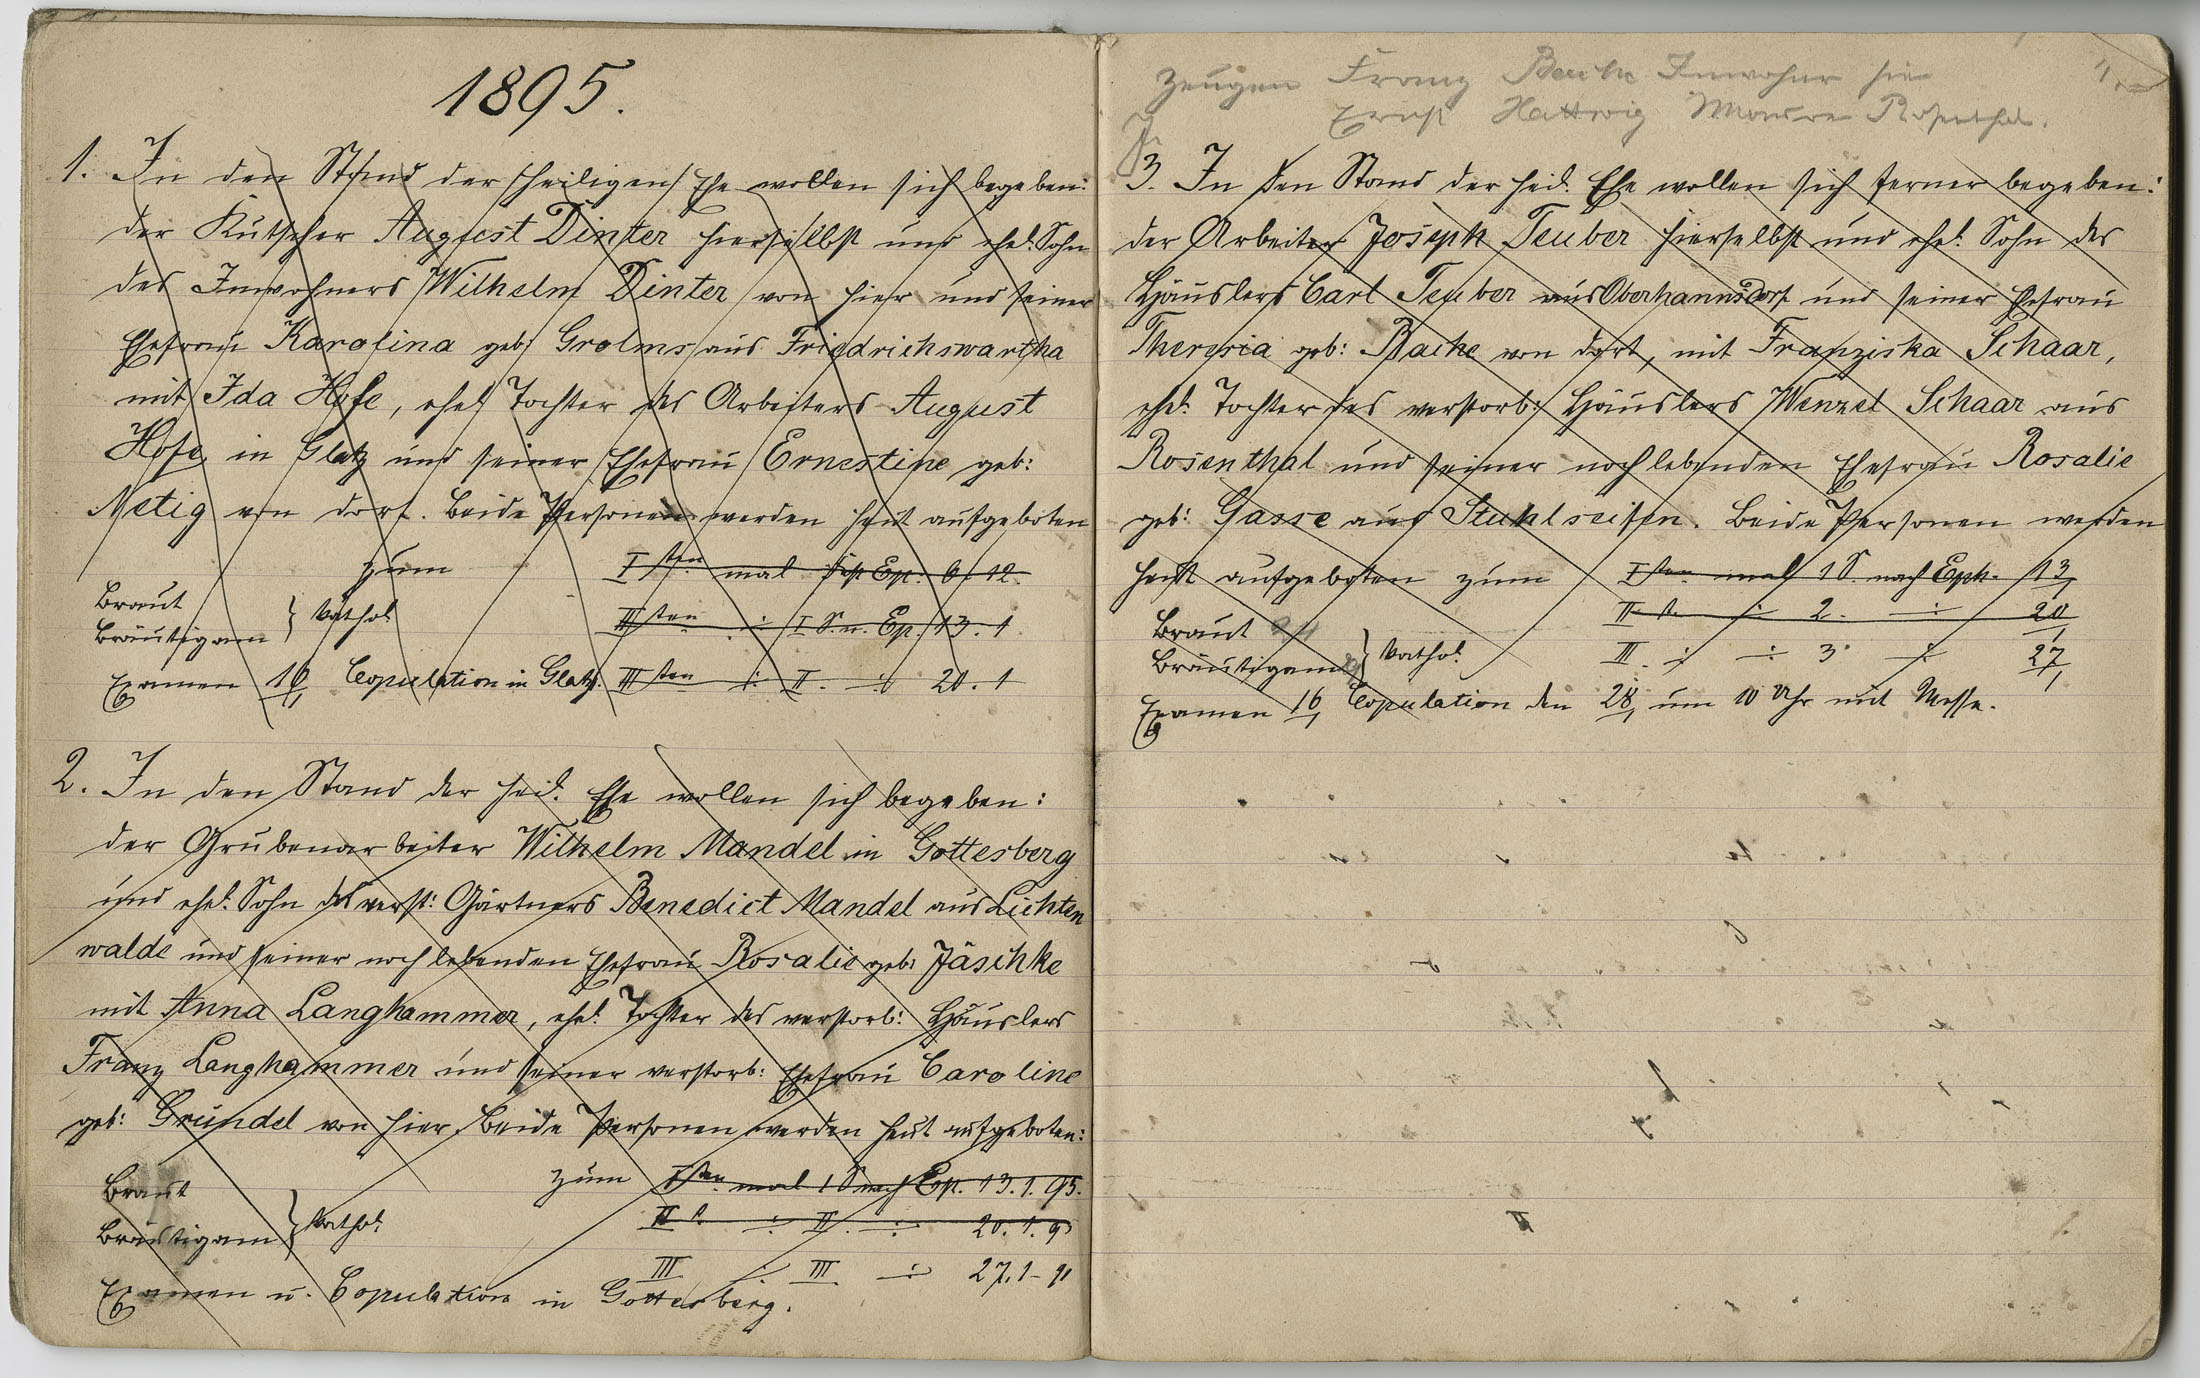 1895.
1. In den Stand der heiligen Ehe wollen sich begeben:
der Kutscher August Dinter hierselbst und ehel. Sohn
des Inwohners Wilhelm Dinter von hier und seiner
Ehefrau Karolina geb: Grolms aus Friedrichswartha
mit Ida Hofe, ehel. Tochter des Arbeiters August
Hofe in Glatz und seiner Ehefrau Ernestine geb:
Metig von dort. Beide Personen werden heut aufgeboten
zum Isten mal fest Ep. 6/12.
Braut
Bräutigam } kathol.
IIten ÷ I S. n. Ep. 13.1
Examen Copulation in Glatz. IIIten ÷ II. ÷ 20.1
2. In den Stand der heil. Ehe wollen sich begeben:
der Grubenarbeiter Wilhelm Mandel in Gottesberg
und ehel. Sohn des verst: Gärtners Benedict Mandel aus Lichten
walde und seiner noch lebenden Ehefrau Rosalie geb: Jäschke
mit Anna Langhammer, ehel. Tochter des verstorb: Häuslers
Franz Langhammer und seiner verstorb: Ehefrau Caroline
geb: Gründel von hier. Beide Personen werden heut aufgeboten:
zum Isten mal 1 S nach Ep. 13.1.95.
Braut
Bräutigam } kathol.
II t. ÷ II. ÷ 20.1.9
III ÷ III. ÷ 27.1-9
Examen u. Copulation in Gottesberg.
Zeugen Franz Bache Inwohner hier
Ernst Hattwig Maurer Rosenthal.
3. In den Stand der heil. Ehe wollen sich ferner begeben:
der Arbeiter Joseph Teuber hierselbst und ehel. Sohn des
Häuslers Carl Teuber aus Oberhannsdorf und seiner Ehefrau
Theresia geb: Bache von dort, mit Franziska Schaar,
ehel. Tochter des verstorb: Häuslers Wenzel Schaar aus
Rosenthal und seiner noch lebenden Ehefrau Rosalie
geb: Gasse aus Stuhlseifen. Beide Personen werden
heut aufgeboten zum Isten mal 1 S. nach Eph. 13/1
II t. ÷ 2. ÷ 20/1
Braut 24
Bräutigam } kathol.
III. ÷ ÷ 3 ÷ 27/1
Examen 16/1 Copulation den 28/1 um 10 Uhr mit Messe.